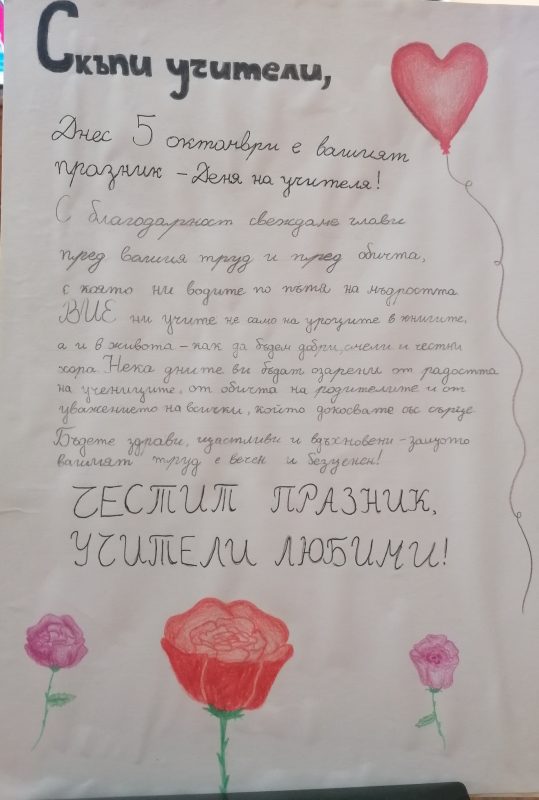 Скъпи учители,
Днес 5 октомври е вашият
празник – Деня на учителя!
С благодарност свеждаме глави
пред вашия труд и пред обичта,
с която ни водите по пътя на мъдростта
ВИЕ ни учите не само на уроците в книгите,
а и в живота – как да бъдем добри, смели и честни
хора. Нека дните ви бъдат озарени от радостта
на учениците, от обичта на родителите и от
уважението на всички, които докосвате със сърце
Бъдете здрави, щастливи и вдъхновени – защото
вашият труд е вечен и безценен!
ЧЕСТИТ ПРАЗНИК,
УЧИТЕЛИ ЛЮБИМИ!